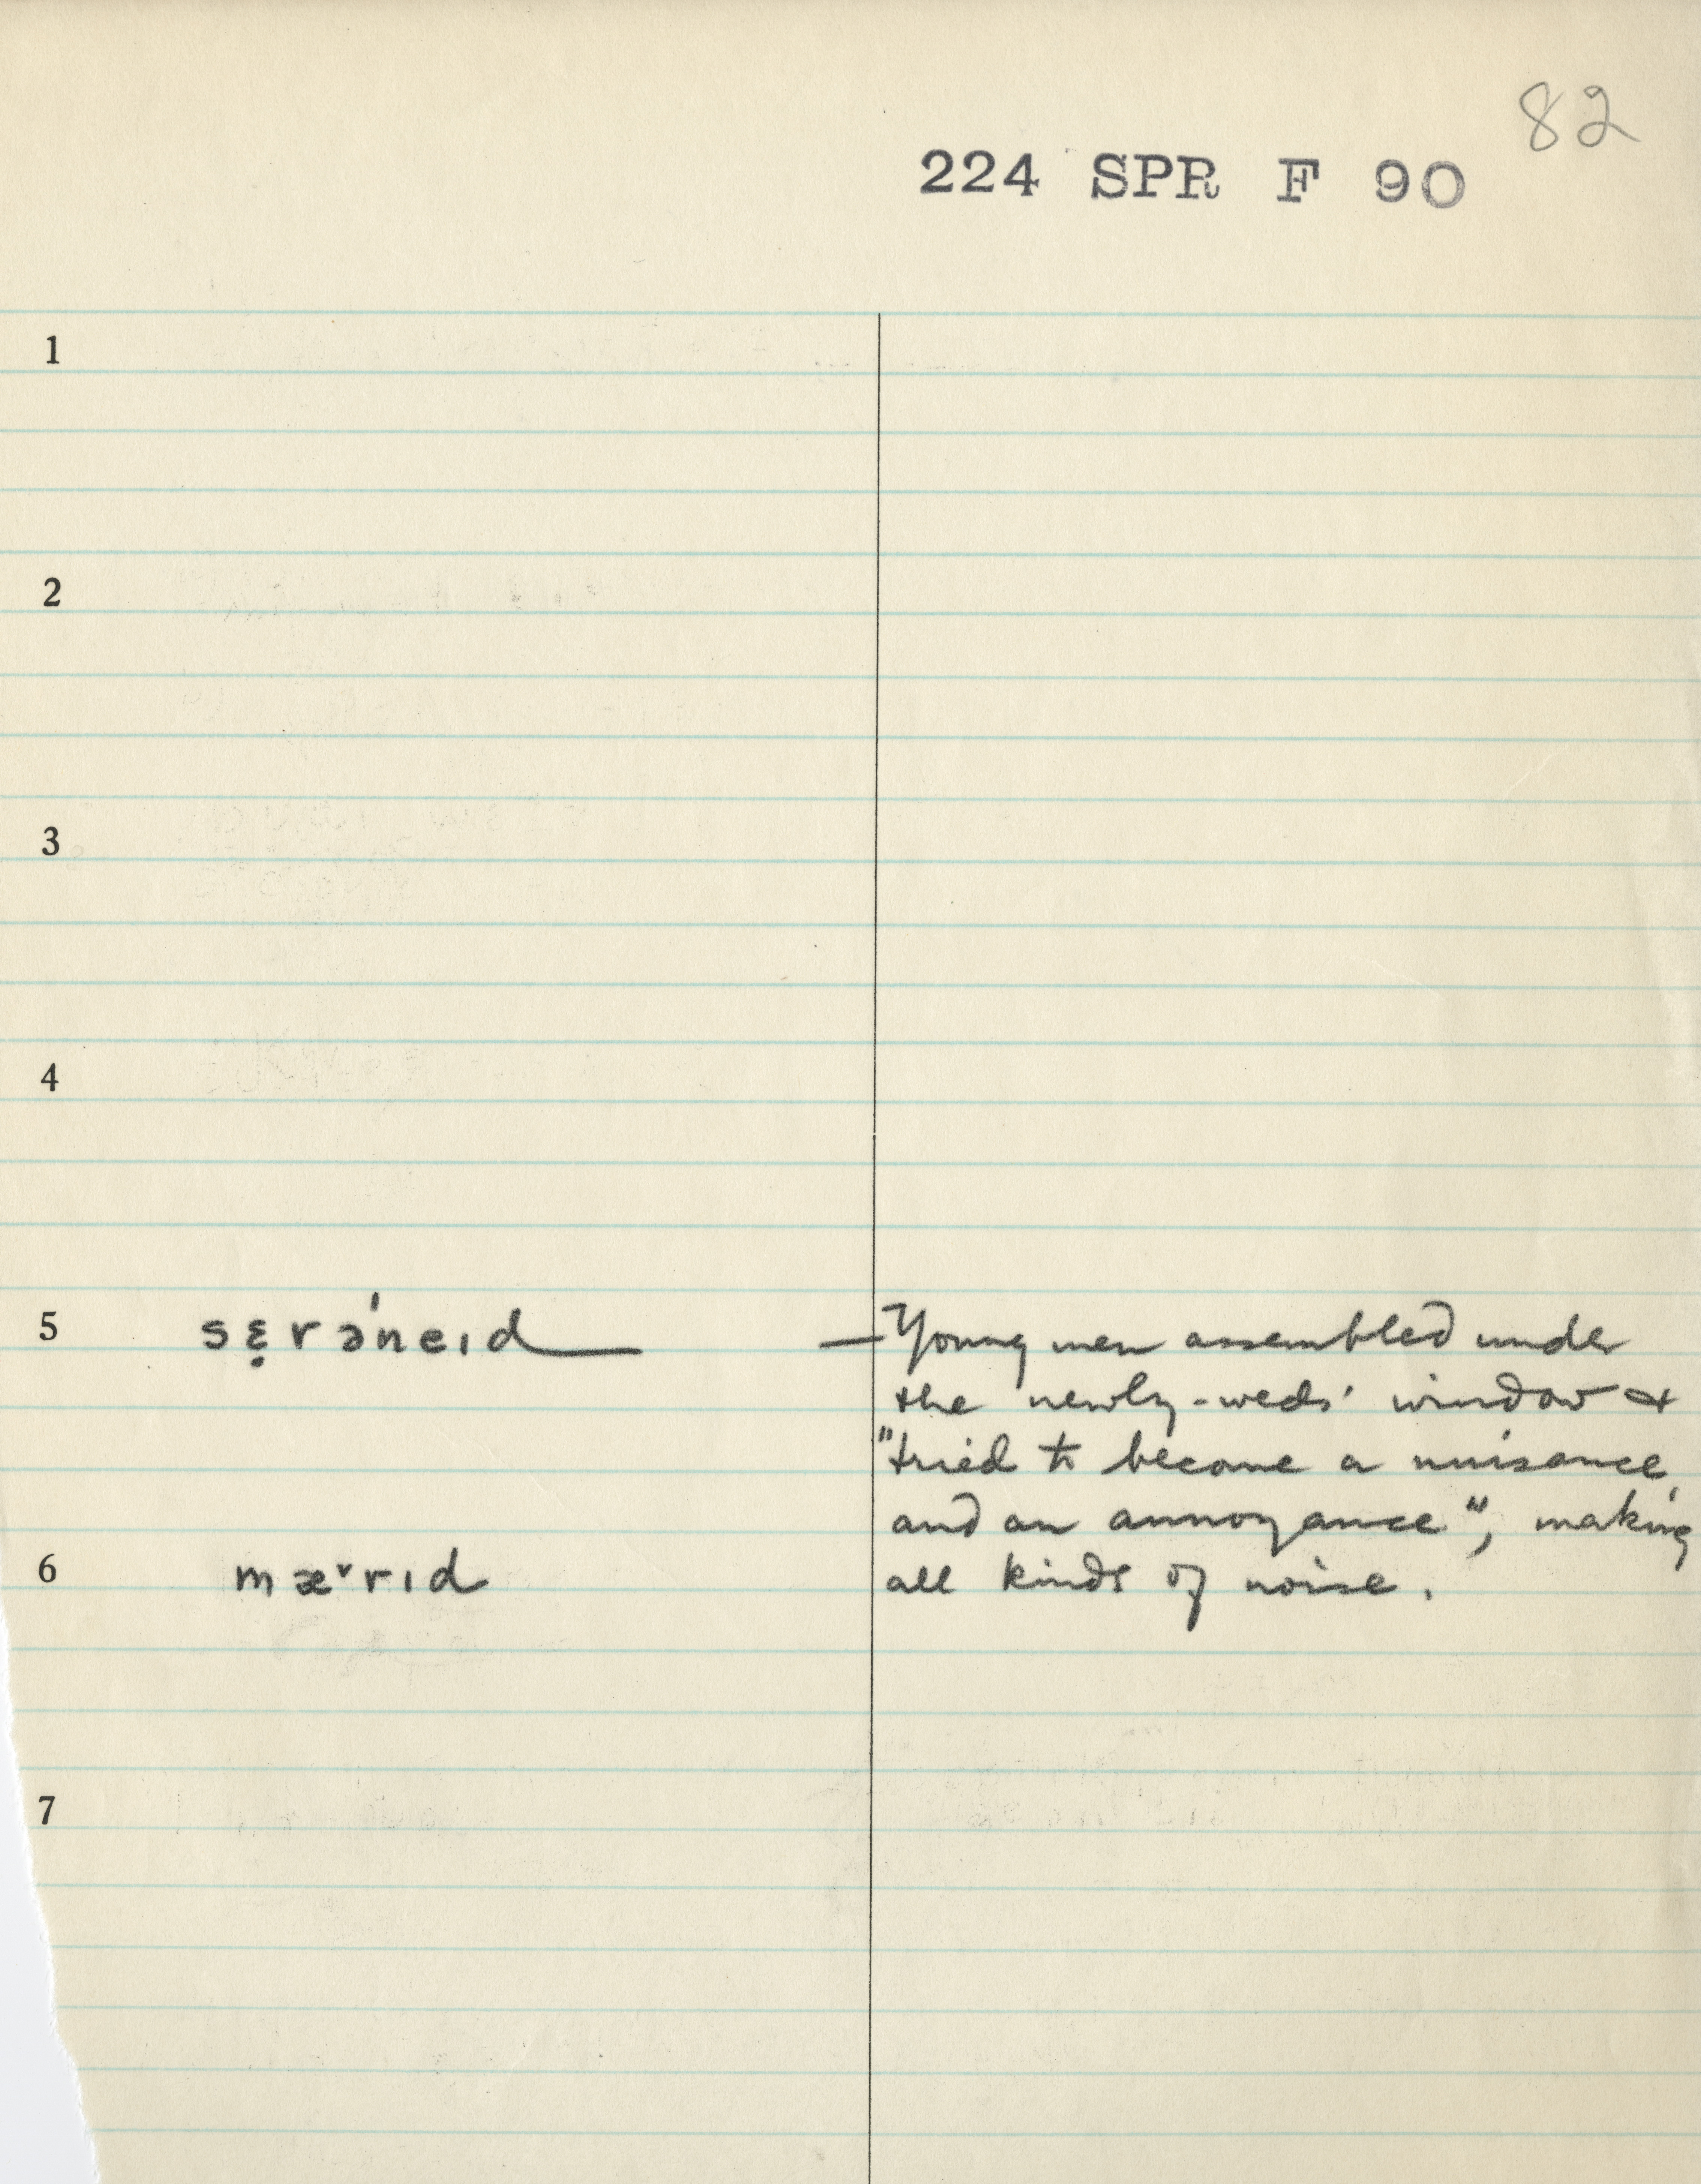 82
224 SPR F 90
1
2
3
4
5 sɛ̣rəˈneɪd — Young men assembled under
the newly-weds' window &
"tried to become a nuisance
and an annoyance", making
6 mæ˅rɪd all kinds of noise.
7